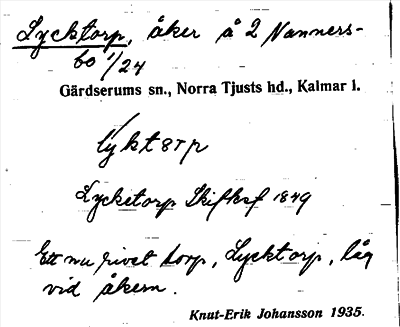 Lycktorp, åker å 2 Nanners-
bo 1/24
Gärdserums sn., Norra Tjusts hd., Kalmar l.
Lycketorp Skifksf 1849
Ett nu rivet torp, Lycktorp, låg
vid åkern.
Knut-Erik Johansson 1935.